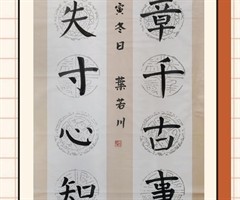 章千古事
寅冬日 葉若川
失寸心知